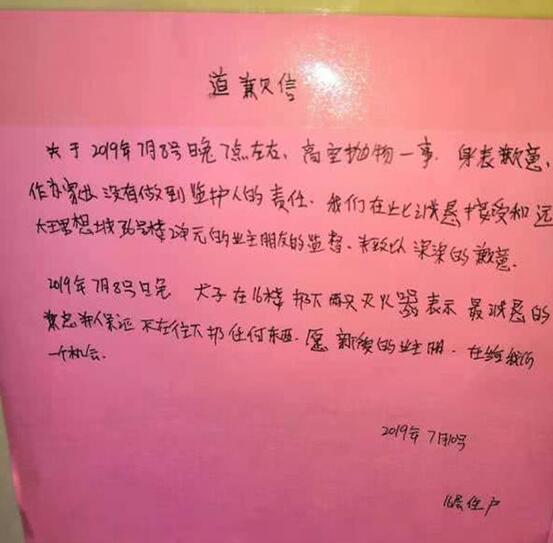 道歉信
关于2019年7月8号晚7点左右、高空抛物一事. 身表歉意,
作为家长没有做到监护人的责任. 我们在此诚恳接受和远
大理想城36号楼2单元的业主朋友的监督. 来致以深深的歉意.
2019年7月8号晚 犬子在16楼扔下两只灭火器 表示最诚恳的
兼 保证不在往下扔任何东西. 愿 的业主朋. 在给我们
一个机会.
2019年7月10号
16层住户